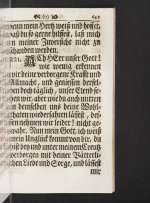 wenn mein Hertz weiß und hoffet,
daß du so gerne hilffest, laß mich
in meiner Zuversicht nicht zu
schanden werden.
ACh HErr unser Gott!
wie wenig erkennen
wir deine verborgene Krafft und
Allmacht, und geniessen dersel-
ben doch täglich, unser Elend se-
hen wir, aber wie du auch mitten
in demselben uns deine Wohl-
thaten wiederfahren lässest, des-
sen nehmen wir leider! nicht ge-
wahr. Nun mein Gott, ich weiß
mein Unglück kommt von dir, du
bist des und unter meinem Creutz
verborgen mit deiner Vätterli-
chen Liebe und Sorge, und lässest
mir